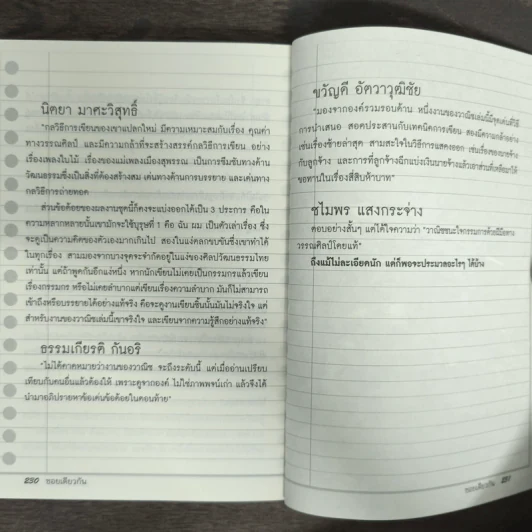 นิตยา มาศะวิสุทธิ์
"กลวิธีการเขียนของเขาแปลกใหม่ มีความเหมาะสมกับเรื่อง คุณค่า
ทางวรรณศิลป์ และมีความกล้าที่จะสร้างสรรค์กลวิธีการเขียน อย่าง
เรื่องเพลงใบไม้ เรื่องของแม่เพลงเมืองสุพรรณ เป็นการชื่นชับทางด้าน
วัฒนธรรมซึ่งเป็นสิ่งที่ต้องสร้างสม เด่นทางด้านการบรรยาย และเด่นทาง
กลวิธีการถ่ายทอด
ส่วนข้อด้อยของผลงานชุดนี้ก็คงจะแบ่งออกได้เป็น 3 ประการ คือใน
ความหลากหลายนั้นเขามักจะใช้บุรุษที่ 1 คือ ฉัน ผม เป็นตัวเล่าเรื่อง ซึ่ง
จะดูเป็นความคิดของตัวเองมากเกินไป สองในแง่ตลกขบขันซึ่งเขาทำได้
ในทุกเรื่อง สามมองจากบางจุดจะจำกัดอยู่ในแง่ของศิลปวัฒนธรรมไทย
เท่านั้น แต่ถ้าพูดกันอีกแง่หนึ่ง หากนักเขียนไม่เคยเป็นกรรมกรแล้วเขียน
เรื่องกรรมกร หรือไม่เคยลำบากแต่เขียนเรื่องความลำบาก มันก็ไม่สามารถ
เข้าถึงหรือบรรยายได้อย่างแท้จริง คือจะดูงานเขียนชิ้นนั้นมันไม่จริงใจ แต่
สำหรับงานของวาณิชเล่มนี้เขาจริงใจ และเขียนจากความรู้สึกอย่างแท้จริง"
ธรรมเกียรติ กันอริ
"ไม่ได้คาดหมายว่างานของวาณิช จะถึงระดับนี้ แต่เมื่ออ่านเปรียบ
เทียบกับคนอื่นแล้วต้องให้ เพราะดูจากองค์ ไม่ใช่ภาพพจน์เก่า แล้วจึงได้
นำมาอภิปรายหาข้อเด่นข้อด้อยในตอนท้าย"
230 ซอยเดียวกัน
ขวัญดี อัตวาวุฒิชัย
"มองจากองค์รวมรอบด้าน หนึ่งงานของวาณิชเล่มนี้มีจุดเด่นที่วิธี
การนำเสนอ สอดประสานกับเทคนิคการเขียน สองมีความกล้าอย่าง
เช่นเรื่องช้ายล่าสุด สามสะใจในวิธีการแสดงออก เช่นเรื่องของนายจ้าง
กับลูกจ้าง และการที่ลูกจ้างฉีกแบ่งเงินนายจ้างแล้วเอาส่วนที่เหลือมาให้
ขอทานในเรื่องสี่สิบห้าบาท"
ชไมพร แสงกระจ่าง
ตอบอย่างสั้นๆ แต่ได้ใจความว่า "วาณิชชนะใจกรรมการด้วยฝีมือทาง
วรรณศิลป์โดยแท้"
ถึงแม้ไม่ละเอียดนัก แต่ก็พอจะประมวลอะไรๆ ได้บ้าง
ซอยเดียวกัน 231